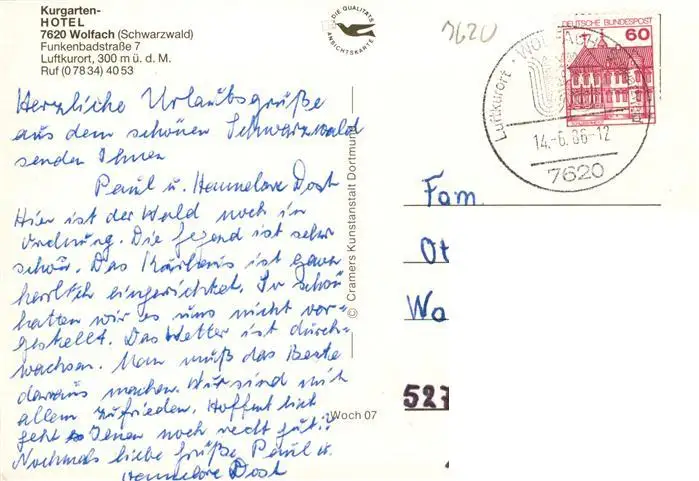 Kurgarten-
HOTEL
7620 Wolfach (Schwarzwald)
Funkenbadstraße 7
Luftkurort, 300 m ü. d. M.
Ruf (0 78 34) 40 53
DIE QUALITÄTS
ANSICHTSKARTE
7620
DEUTSCHE BUNDESPOST
60
Luftkurort · WOLFACH
14.-6.86-12
7620
Herzliche Urlaubsgrüße
aus dem schönen Schwarzwald
senden Ihnen
Paul u. Hannelore Dost
Hier ist der Wald noch in
Ordnung. Die Gegend ist sehr
schön. Das Kurhaus ist ganz
herrlich eingerichtet. So schön
hatten wir es uns nicht vor=
gestellt. Das Wetter ist durch=
wachsen. Man muß das Beste
daraus machen. Wir sind mit
allem zufrieden. Hoffentlich
geht es Ihnen noch recht gut!?
Nochmals liebe Grüße Paul u.
Hannelore Dost
© Cramers Kunstanstalt Dortmund
Woch 07
Fam
Ot
Wa
527